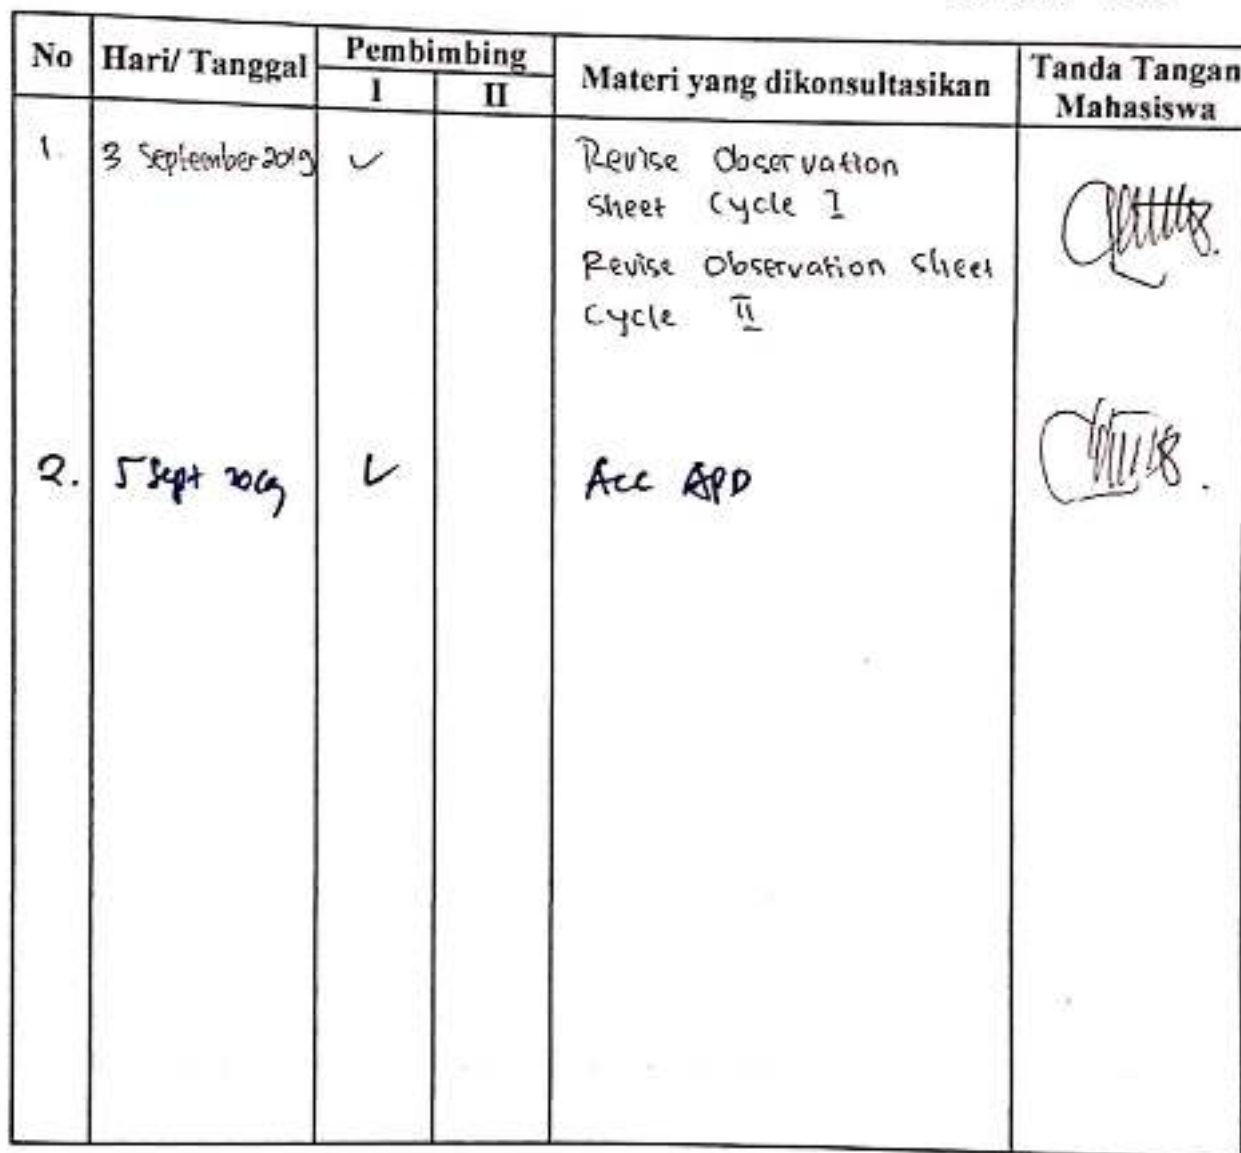 No Hari/ Tanggal Pembimbing Materi yang dikonsultasikan Tanda Tangan Mahasiswa
I II
1. 3 September 2019 ✓ Revise Observation
Sheet Cycle I
Revise Observation Sheet
Cycle II
2. 5 Sept 2019 ✓ Acc APD